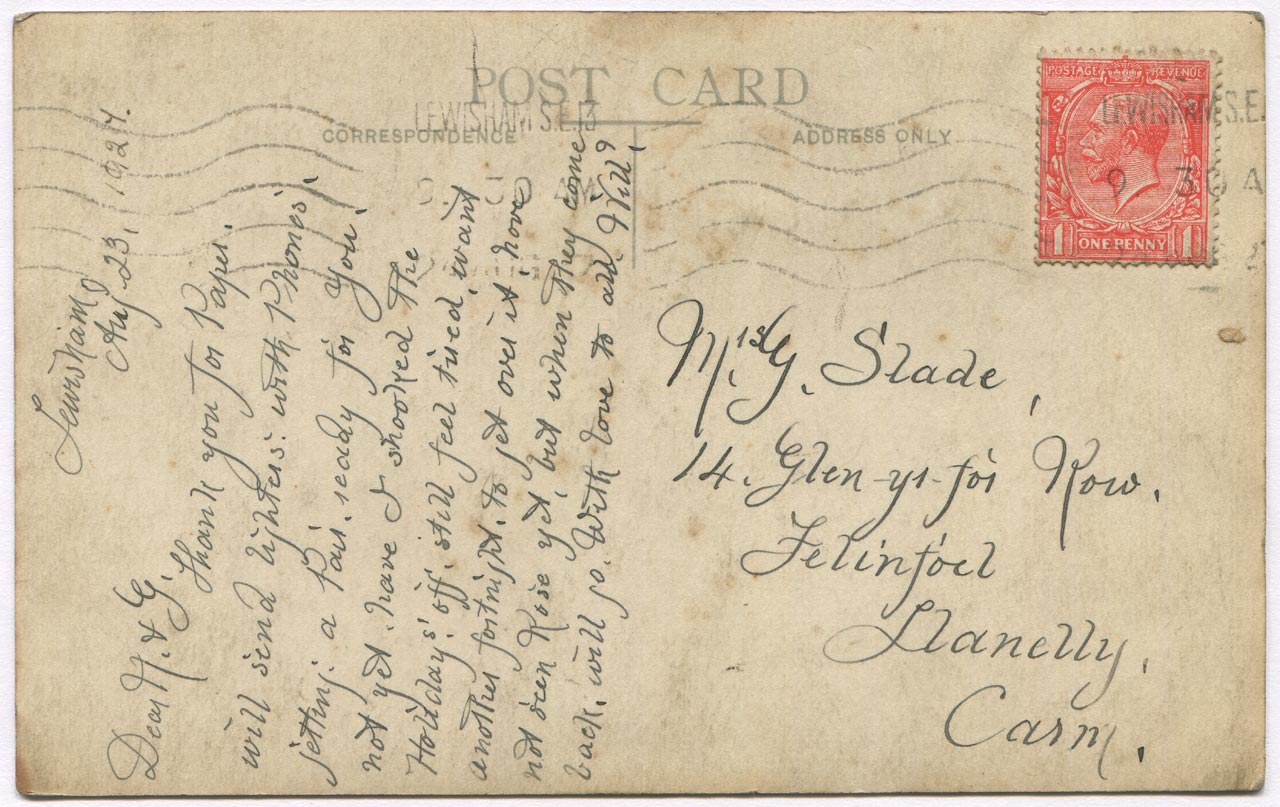 POST CARD
CORRESPONDENCE
ADDRESS ONLY
LEWISHAM S.E.13
9 30 AM
POSTAGE REVENUE
1 ONE PENNY 1
LEWISHAM S.E.
9 30 A
Lewisham
Aug 23, 1924.
Dear N. & G.
Thank you for Paper.
will send lighters: with Phones'
getting: a Pair. ready for You!
not yet. have I smoked The
Holidays' off. still feel tired, want
another fortnight. to get over it! have
not seen Rose yet, but when They come
back, will go. With love to all. Will?
Mrs. G. Slade,
14. Glen-yr-for Row.
Felinfoel
Llanelly,
Carm,